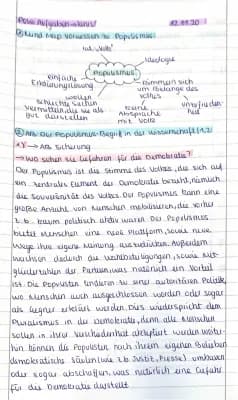 Powi Aufgaben-Virus!
12.03.20
① Mind Map Vorwissen zu Populismus:
"das Volk"
Ideologie
Populismus
einfache
Erklärungslösung
kümmern sich
um Belange des
Volkes
wollen
schlechte Seiten
vermitteln, die sie als
gut darstellen
keine
Absprache
mit Volk
unzufrieden-
heit
② AB: Der Populismus-Begriff in der Wissenschaft (1.)
→ AB Sicherung
→ Wo sehen sie Gefahren für die Demokratie?
Der Populismus ist die Stimme des Volkes, die sich auf
ein zentrales Element der Demokratie bezieht, nämlich
die Souveränität des Volkes. Der Populismus kann eine
große Anzahl von Menschen mobilisieren, die vorher
z.b. kaum politisch aktiv waren. Der Populismus
bietet Menschen eine neue Plattform, sowie neue
Wege ihre eigene Meinung auszudrücken. Außerdem
wachsen dadurch die Wahlbeteiligungen, sowie Mit-
gliederzahlen der Parteien, was natürlich ein Vorteil
ist. Die Populisten tendieren zu einer autoritären Politik,
wo Menschen auch ausgeschlossen werden oder sogar
als Gegner erklärt werden. Dies widerspricht dem
Pluralismus in der Demokratie, denn alle Menschen
sollen in ihrer Verschiedenheit akzeptiert werden. Weiter-
hin können die Populisten nach ihrem eigenen Belieben
demokratische Säulen (wie z.b. Justiz, Presse) umbauen
oder sogar abschaffen, was natürlich eine Gefahr
für die Demokratie darstellt.